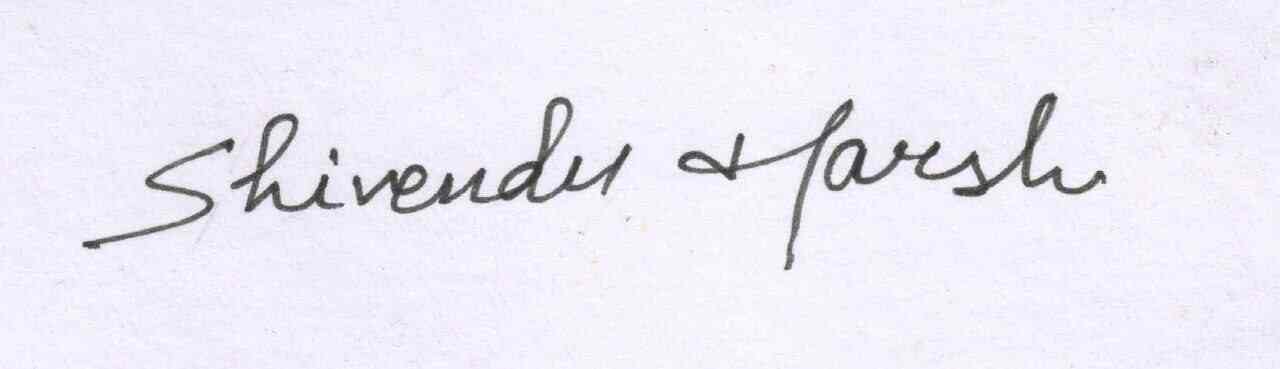 Shivendu Harsh